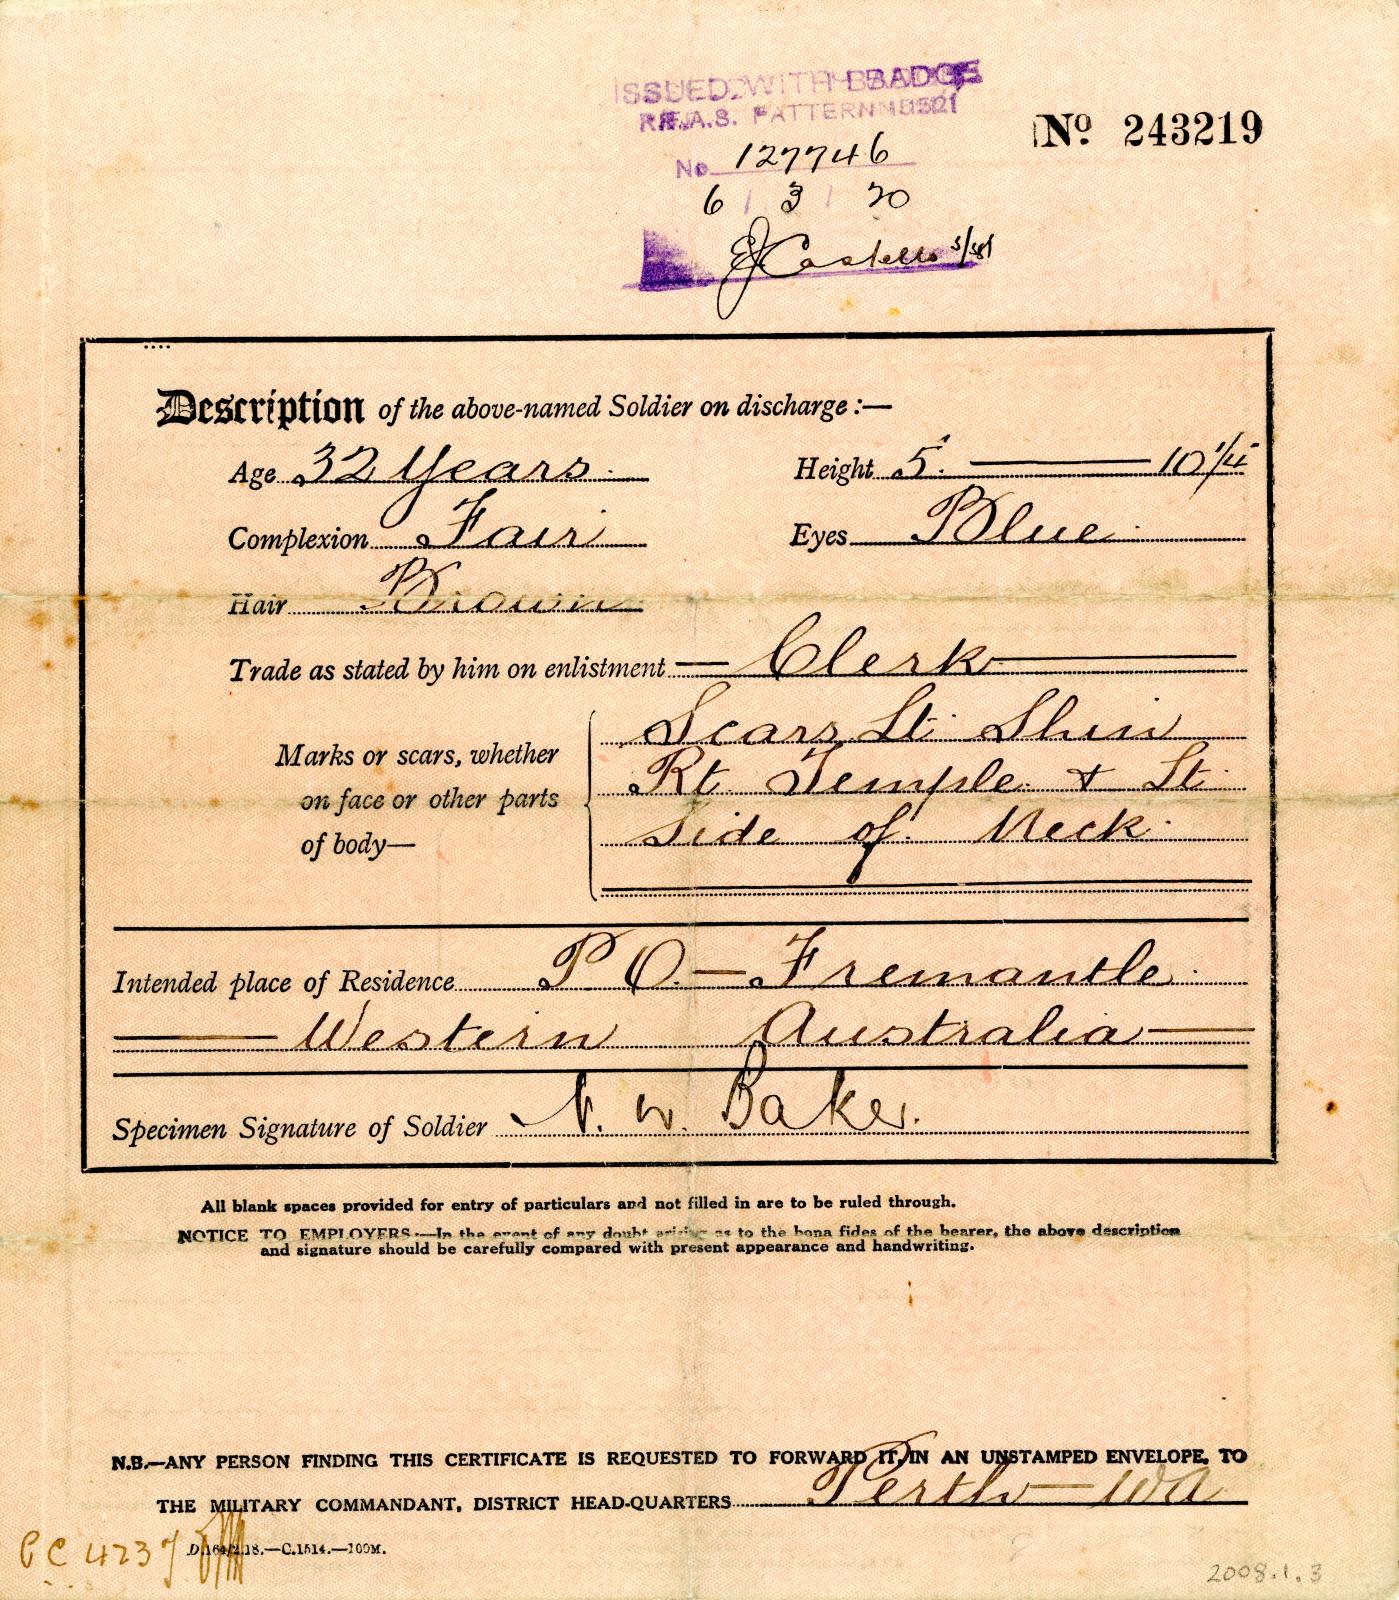 ISSUED WITH BADGE
R.A.S. PATTERN
No 243219
No 127746
6 / 3 / 20
EJ Costello S/Sgt
Description of the above-named Soldier on discharge :—
Age 32 Years. Height 5' — 10 1/4"
Complexion Fair Eyes Blue
Hair Brown
Trade as stated by him on enlistment — Clerk —
Marks or scars, whether on face or other parts of body—
Scars Lt Shin
Rt. Temple & Lt
Side of Neck.
Intended place of Residence P.O. — Fremantle.
— Western Australia —
Specimen Signature of Soldier N. W. Baker.
All blank spaces provided for entry of particulars and not filled in are to be ruled through.
NOTICE TO EMPLOYERS.—In the event of any doubt arising as to the bona fides of the bearer, the above description
and signature should be carefully compared with present appearance and handwriting.
N.B.—ANY PERSON FINDING THIS CERTIFICATE IS REQUESTED TO FORWARD IT, IN AN UNSTAMPED ENVELOPE, TO
THE MILITARY COMMANDANT, DISTRICT HEAD-QUARTERS Perth — WA
D.164/2.18.—C.1514.—100M.
CC 4237
2008.1.3